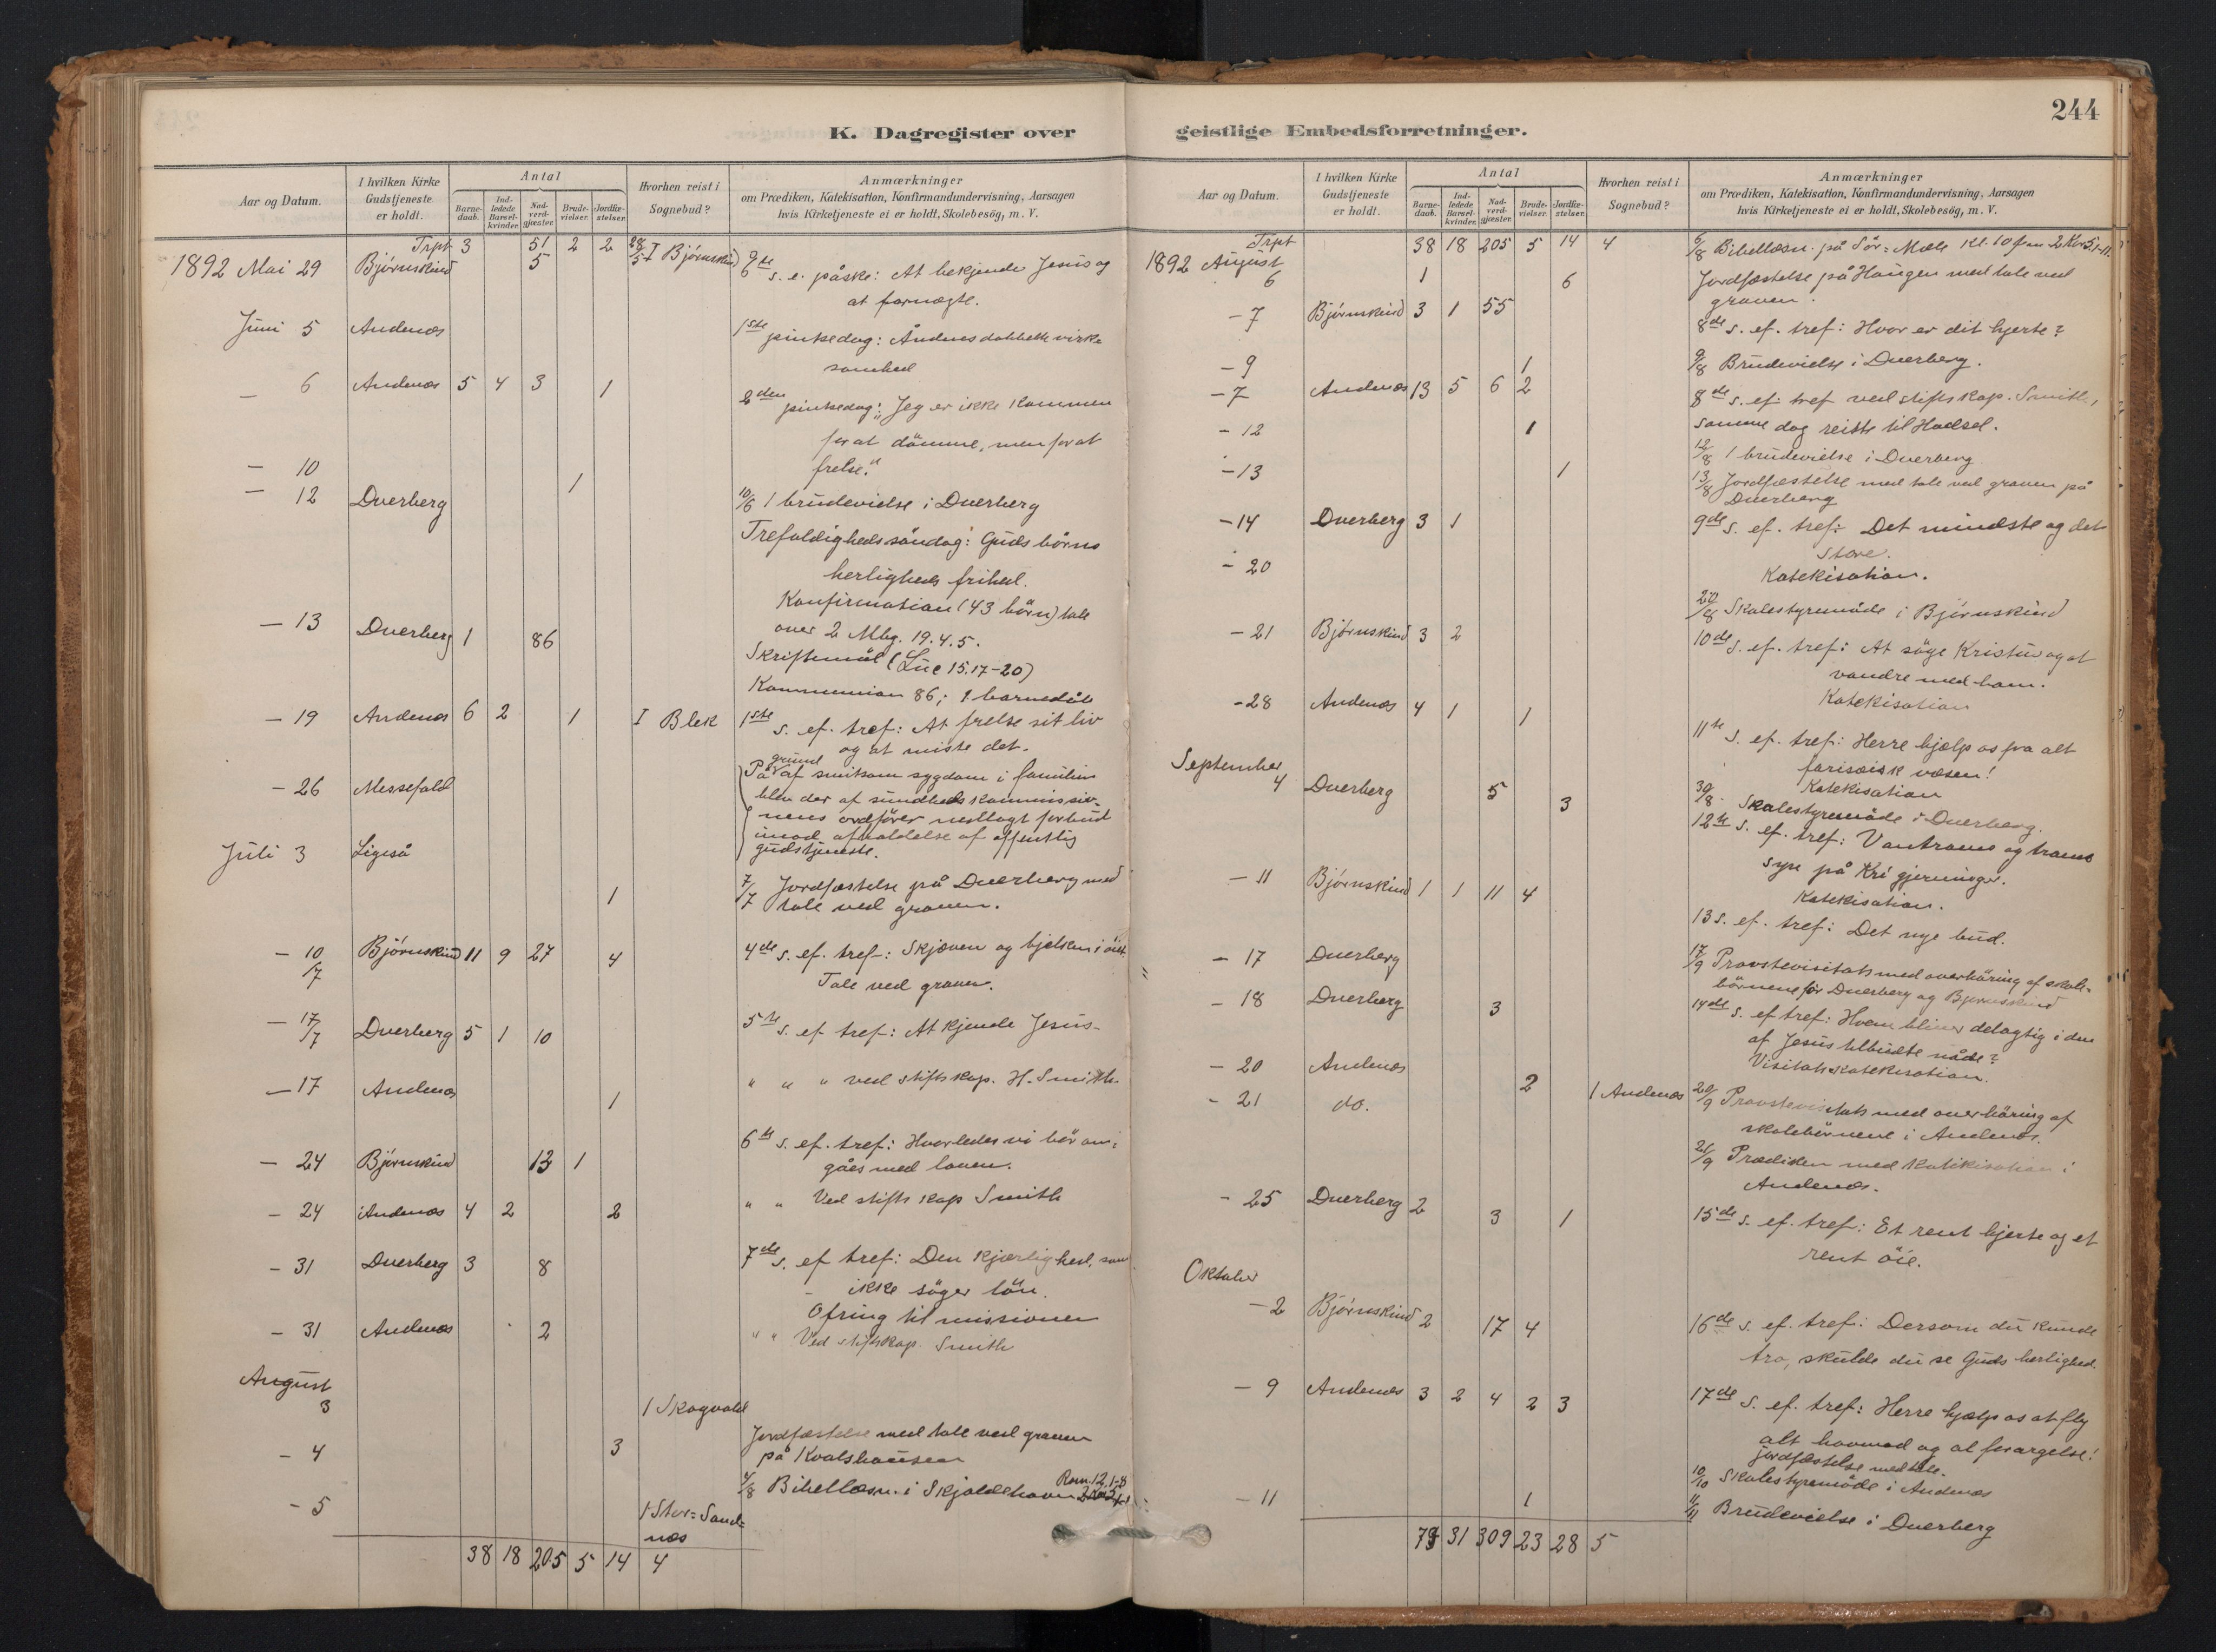 244
K. Dagregister over
geistlige Embedsforretninger.
Aar og Datum.
I hvilken Kirke Gudstjeneste er holdt.
Antal
Barne-daab.
Ind-ledede Barsel-kvinder.
Nad-verd-gjæster.
Brude-vielser.
Jordfæ-stelser.
Hvorhen reist i Sognebud?
Anmærkninger
om Prædiken, Katekisation, Konfirmandundervisning, Aarsagen
hvis Kirketjeneste ei er holdt, Skolebesög, m. V.
Trpt 3 51 2 2 28/5 I Bjørnskind
1892 Mai 29 Bjørnskind 5 6te s. e. påske: At bekjende Jesus og
at fornægte.
Juni 5 Andenæs 1ste pintsedag: Åndens dobbelte virk-
somhed
– 6 Andenæs 5 4 3 1 2den pintsedag: „Jeg er ikke kommen
for at dömme, men for at
frelse."
– 10 1
– 12 Dverberg 10/6 1 brudevielse i Dverberg
Trefoldighedssöndag: Guds börns
herligheds frihed.
Konfirmation (43 börn) tale
over 2 Mbg. 19.4.5.
– 13 Dverberg 1 86 Skriftemål (Luc 15.17-20)
Kommunion 86; 1 barnedåb
– 19 Andenæs 6 2 1 I Blek 1ste s. ef. tref: At frelse sit liv
og at miste det.
– 26 Messefald På grund af smitsom sygdom i familien
blev der af sundhedskommissio-
nens ordförer nedlagt forbud
imod afholdelse af offentlig
gudstjeneste.
Juli 3 Ligeså
1 7/7 Jordfæstelse på Dverberg med
tale ved graven.
– 10/7 Bjørnskind 11 9 27 4 4de s. ef. tref: Skjæven og bjelken i öiet.
Tale ved graven.
– 17/7 Dverberg 5 1 10 5te s. ef tref: At kjende Jesus.
– 17 Andenæs 1 " " " ved stiftskap. H. Smith.
– 24 Bjørnskind 13 1 6te s. ef. tref: Hvorledes vi bör om-
gåes med loven.
– 24 Andenæs 4 2 2 " " Ved stiftskap Smith
– 31 Dverberg 3 8 7de s. ef tref: Den kjærlighed, som
ikke söger lön.
Ofring til missionen
– 31 Andenæs 2 " " Ved stiftskap. Smith
August
3 1 Skogvold
– 4 3 Jordfæstelse med tale ved graven
på Kvalshausen
4/8 Bibellæsn. i Skjoldehavn Rom. 12.1-8
– 5 1 Stor-Sand-
næs
38 18 205 5 14 4
Aar og Datum.
I hvilken Kirke Gudstjeneste er holdt.
Antal
Barne-daab.
Ind-ledede Barsel-kvinder.
Nad-verd-gjæster.
Brude-vielser.
Jordfæ-stelser.
Hvorhen reist i Sognebud?
Anmærkninger
om Prædiken, Katekisation, Konfirmandundervisning, Aarsagen
hvis Kirketjeneste ei er holdt, Skolebesög, m. V.
Trpt 38 18 205 5 14 4 6/8 Bibellæsn. på Sör-Mæle kl. 10 fm 2 Kor 5.1-11.
1892 August
6 1 6 Jordfæstelse på Haugen med tale ved
graven.
– 7 Bjørnskind 3 1 55 8de s. ef. tref: Hvor er dit hjerte?
– 9 1 9/8 Brudevielse i Dverberg.
– 7 Andenæs 13 5 6 2 8de s. ef. tref ved stiftskap. Smith,
– 12 1 samme dag reiste til Hadsel.
12/8 1 brudevielse i Dverberg
– 13 1 13/8 Jordfæstelse med tale ved graven på
Dverberg
– 14 Dverberg 3 1 9de s. ef. tref: Det mindste og det
store.
– 20 Katekisation.
20/8 Skolestyremöde i Bjørnskind
– 21 Bjørnskind 3 2 10de s. ef. tref: At söge Kristus og at
vandre med ham.
Katekisation
– 28 Andenæs 4 1 1 11te s. ef. tref: Herre hjælp os fra alt
farisæisk væsen!
Katekisation
September
4 Dverberg 5 3 30/8 Skolestyremöde i Dverberg.
12te s. ef. tref: Vantroens og troens
syn på Kri gjerninger.
Katekisation.
– 11 Bjørnskind 1 1 11 4 13 s. ef. tref: Det nye bud.
– 17 Dverberg 17/9 Provstevisitats med overhöring af skole-
börnene for Dverberg og Bjørnskind
– 18 Dverberg 3 14de s. ef tref: Hvem bliver delagtig i den
af Jesus tilbudte nåde?
Visitatskatekisation.
– 20 Andenæs 2 1 Andenæs 20/9 Provstevisitats med overhöring af
skolebörnene i Andenæs.
– 21 do. 21/9 Prædiken med katekisation i
Andenæs.
– 25 Dverberg 2 3 1 15de s. ef. tref: Et rent hjerte og et
rent öie.
Oktober
– 2 Bjørnskind 2 17 4 16de s. ef. tref: Dersom du kunde
tro, skulde du se Guds herlighed.
– 9 Andenæs 3 2 4 2 3 17de s. ef. tref: Herre hjælp os at fly
alt hovmod og al forargelse!
jordfæstelse med tale.
10/10 Skolestyremöde i Andenæs
– 11 1 11/11 Brudevielse i Dverberg
79 31 309 23 28 5